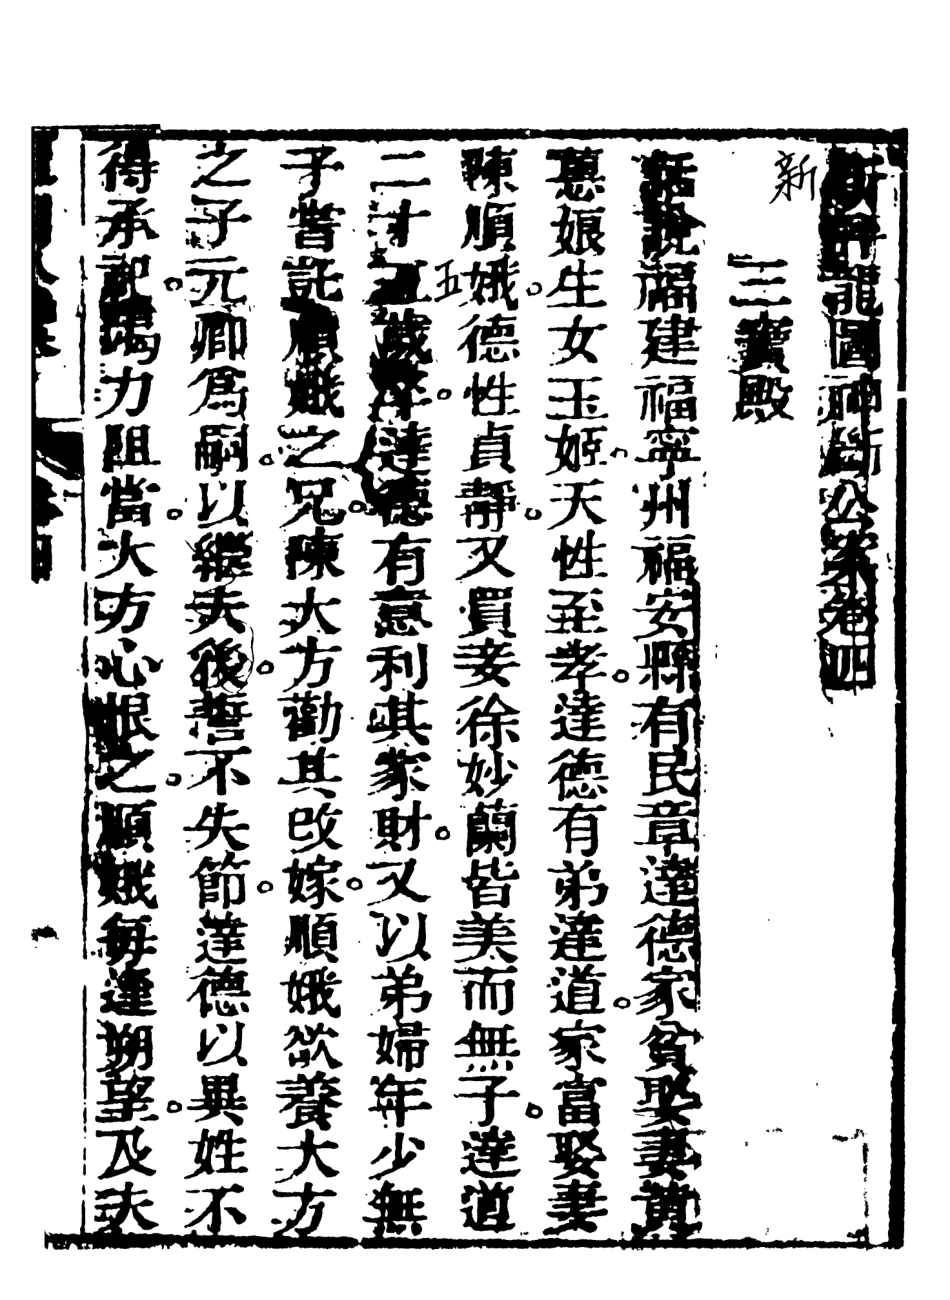 新評龍圖神斷公案卷四
新
三寶殿
話說福建福寧州福安縣有民章達德家貧娶妻黃
蕙娘生女玉姬天性至孝達德有弟達道家富娶妻
陳順娥德性貞靜又買妾徐妙蘭皆美而無子達道
二十五歲卒達德有意利其家財又以弟婦年少無
五
子嘗託順娥之兄陳大方勸其改嫁順娥欲養大方
之子元卿爲嗣以繼夫後誓不失節達德以異姓不
得承祀竭力阻當大方心恨之順娥每逢朔望及夫